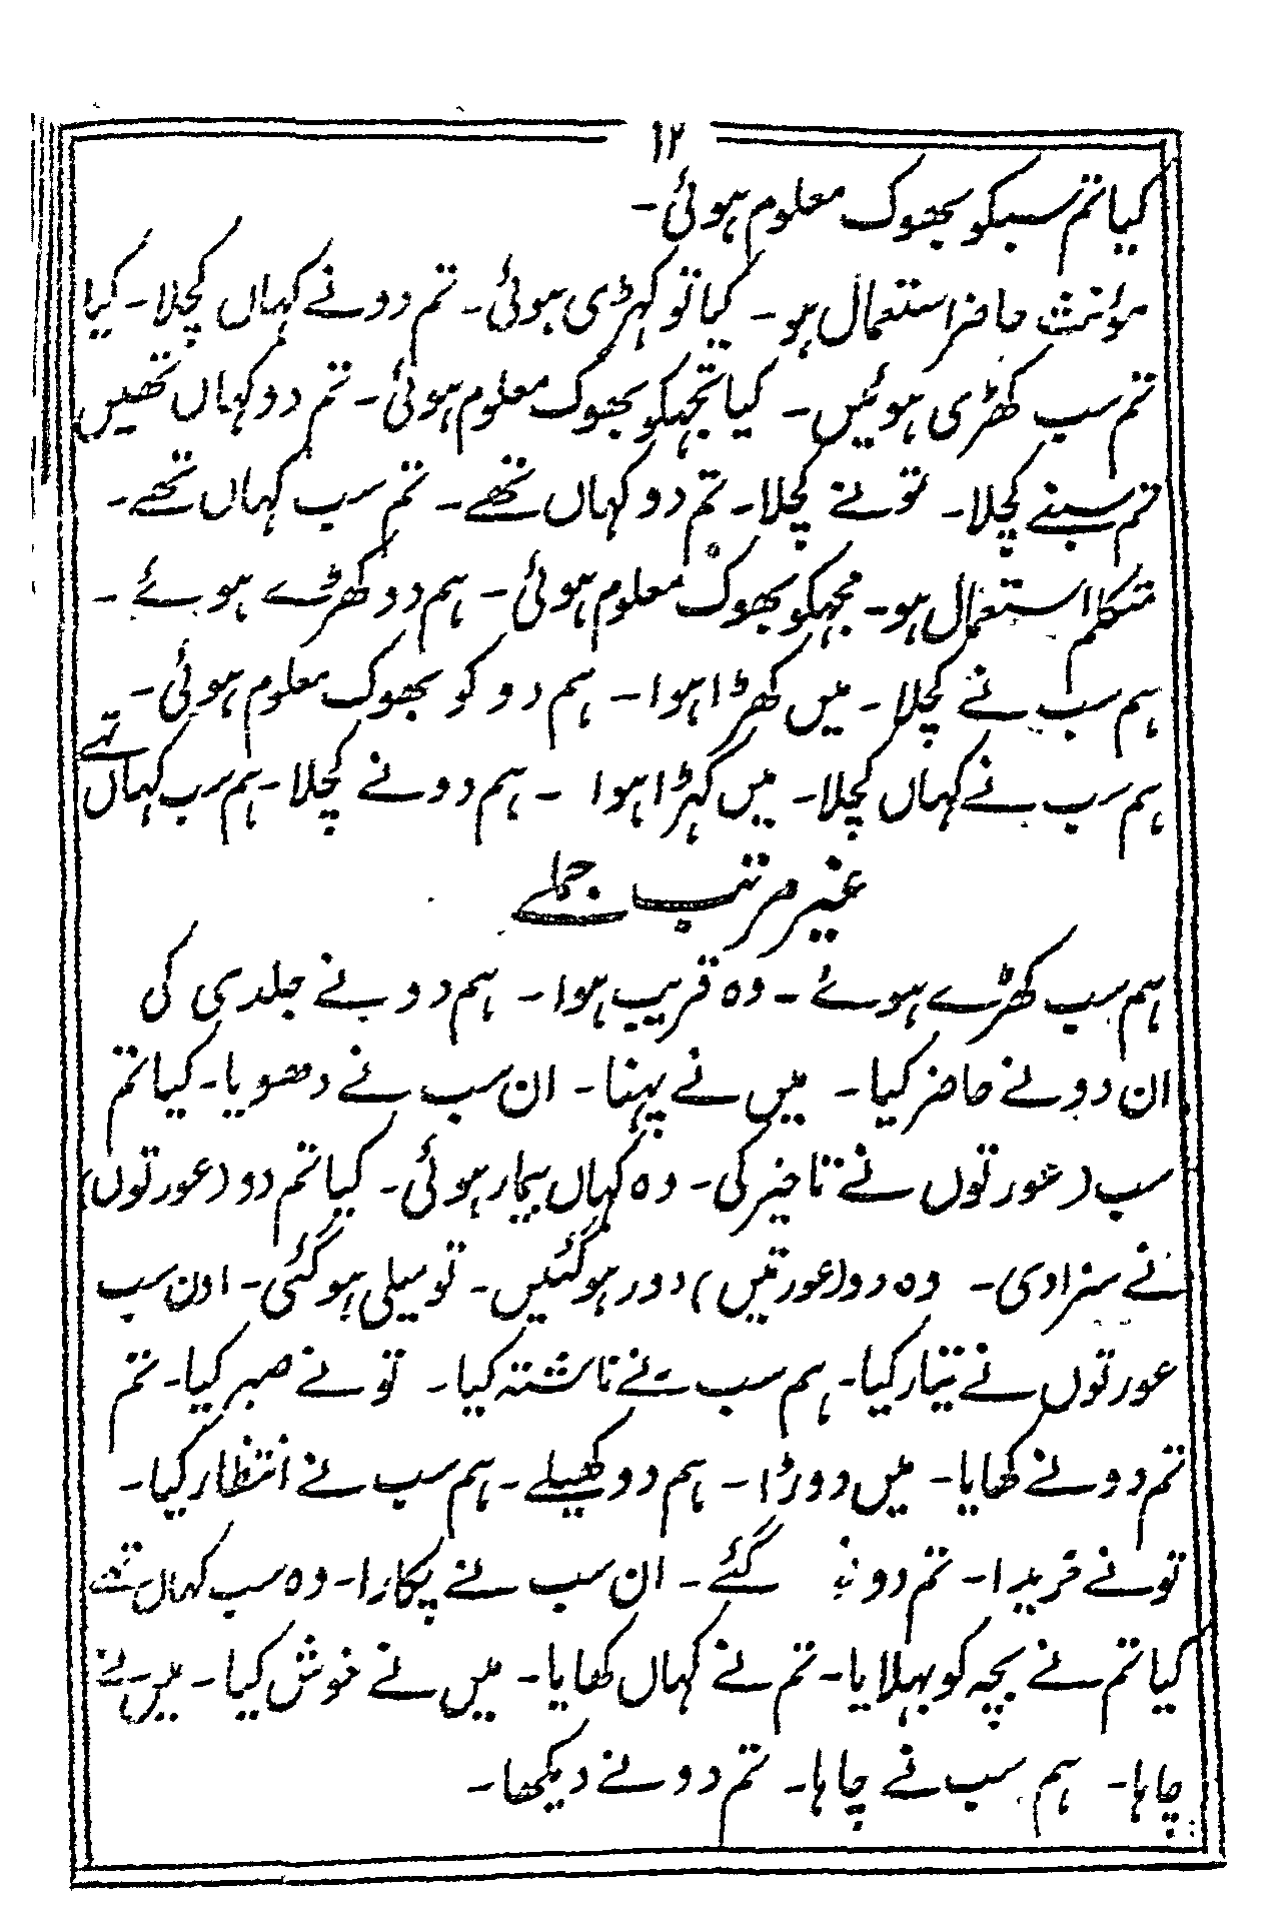 ۱۲
کیا تم سبکو بھوک معلوم ہوئی۔
مؤنث حاضر استعمال ہو۔ کیا تو کہڑی ہوئی۔ تم دو نے کہاں کچلا۔ کیا
تم سب کھڑی ہوئیں۔ کیا تجہکو بھوک معلوم ہوئی۔ تم دو کہاں تھیں
تم سبنے کچلا۔ تو نے کچلا۔ تم دو کہاں تھے۔ تم سب کہاں تھے۔
متکلم استعمال ہو۔ مجہکو بھوک معلوم ہوئی۔ ہم دو کھڑے ہوئے۔
ہم سب نے کچلا۔ میں کھڑا ہوا۔ ہم دو کو بھوک معلوم ہوئی۔
ہم سب نے کہاں کچلا۔ میں کہڑا ہوا ۔ ہم دو نے کچلا۔ ہم سب کہاں تہے
غیر مرتب جملے
ہم سب کھڑے ہوئے۔ وہ قریب ہوا۔ ہم دو نے جلدی کی
ان دو نے حاضر کیا۔ میں نے پہنا۔ ان سب نے دھویا۔ کیا تم
سب (عورتوں نے تاخیر کی۔ وہ کہاں بیمار ہوئی۔ کیا تم دو (عورتوں)
نے سزا دی۔ وہ دو (عورتیں) دور ہوگئیں۔ تو میلی ہوگئی۔ اون سب
عورتوں نے تیار کیا۔ ہم سب نے ناشتہ کیا۔ تو نے صبر کیا۔ تم
تم دو نے کھایا۔ میں دوڑا۔ ہم دو کھیلے۔ ہم سب نے انتظار کیا۔
تو نے خریدا۔ تم دو گئے۔ ان سب نے پکارا۔ وہ سب کہاں تھے
کیا تم نے بچہ کو بہلایا۔ تم نے کہاں کھایا۔ میں نے خوش کیا۔ میں نے
چاہا۔ ہم سب نے چاہا۔ تم دو نے دیکھا۔